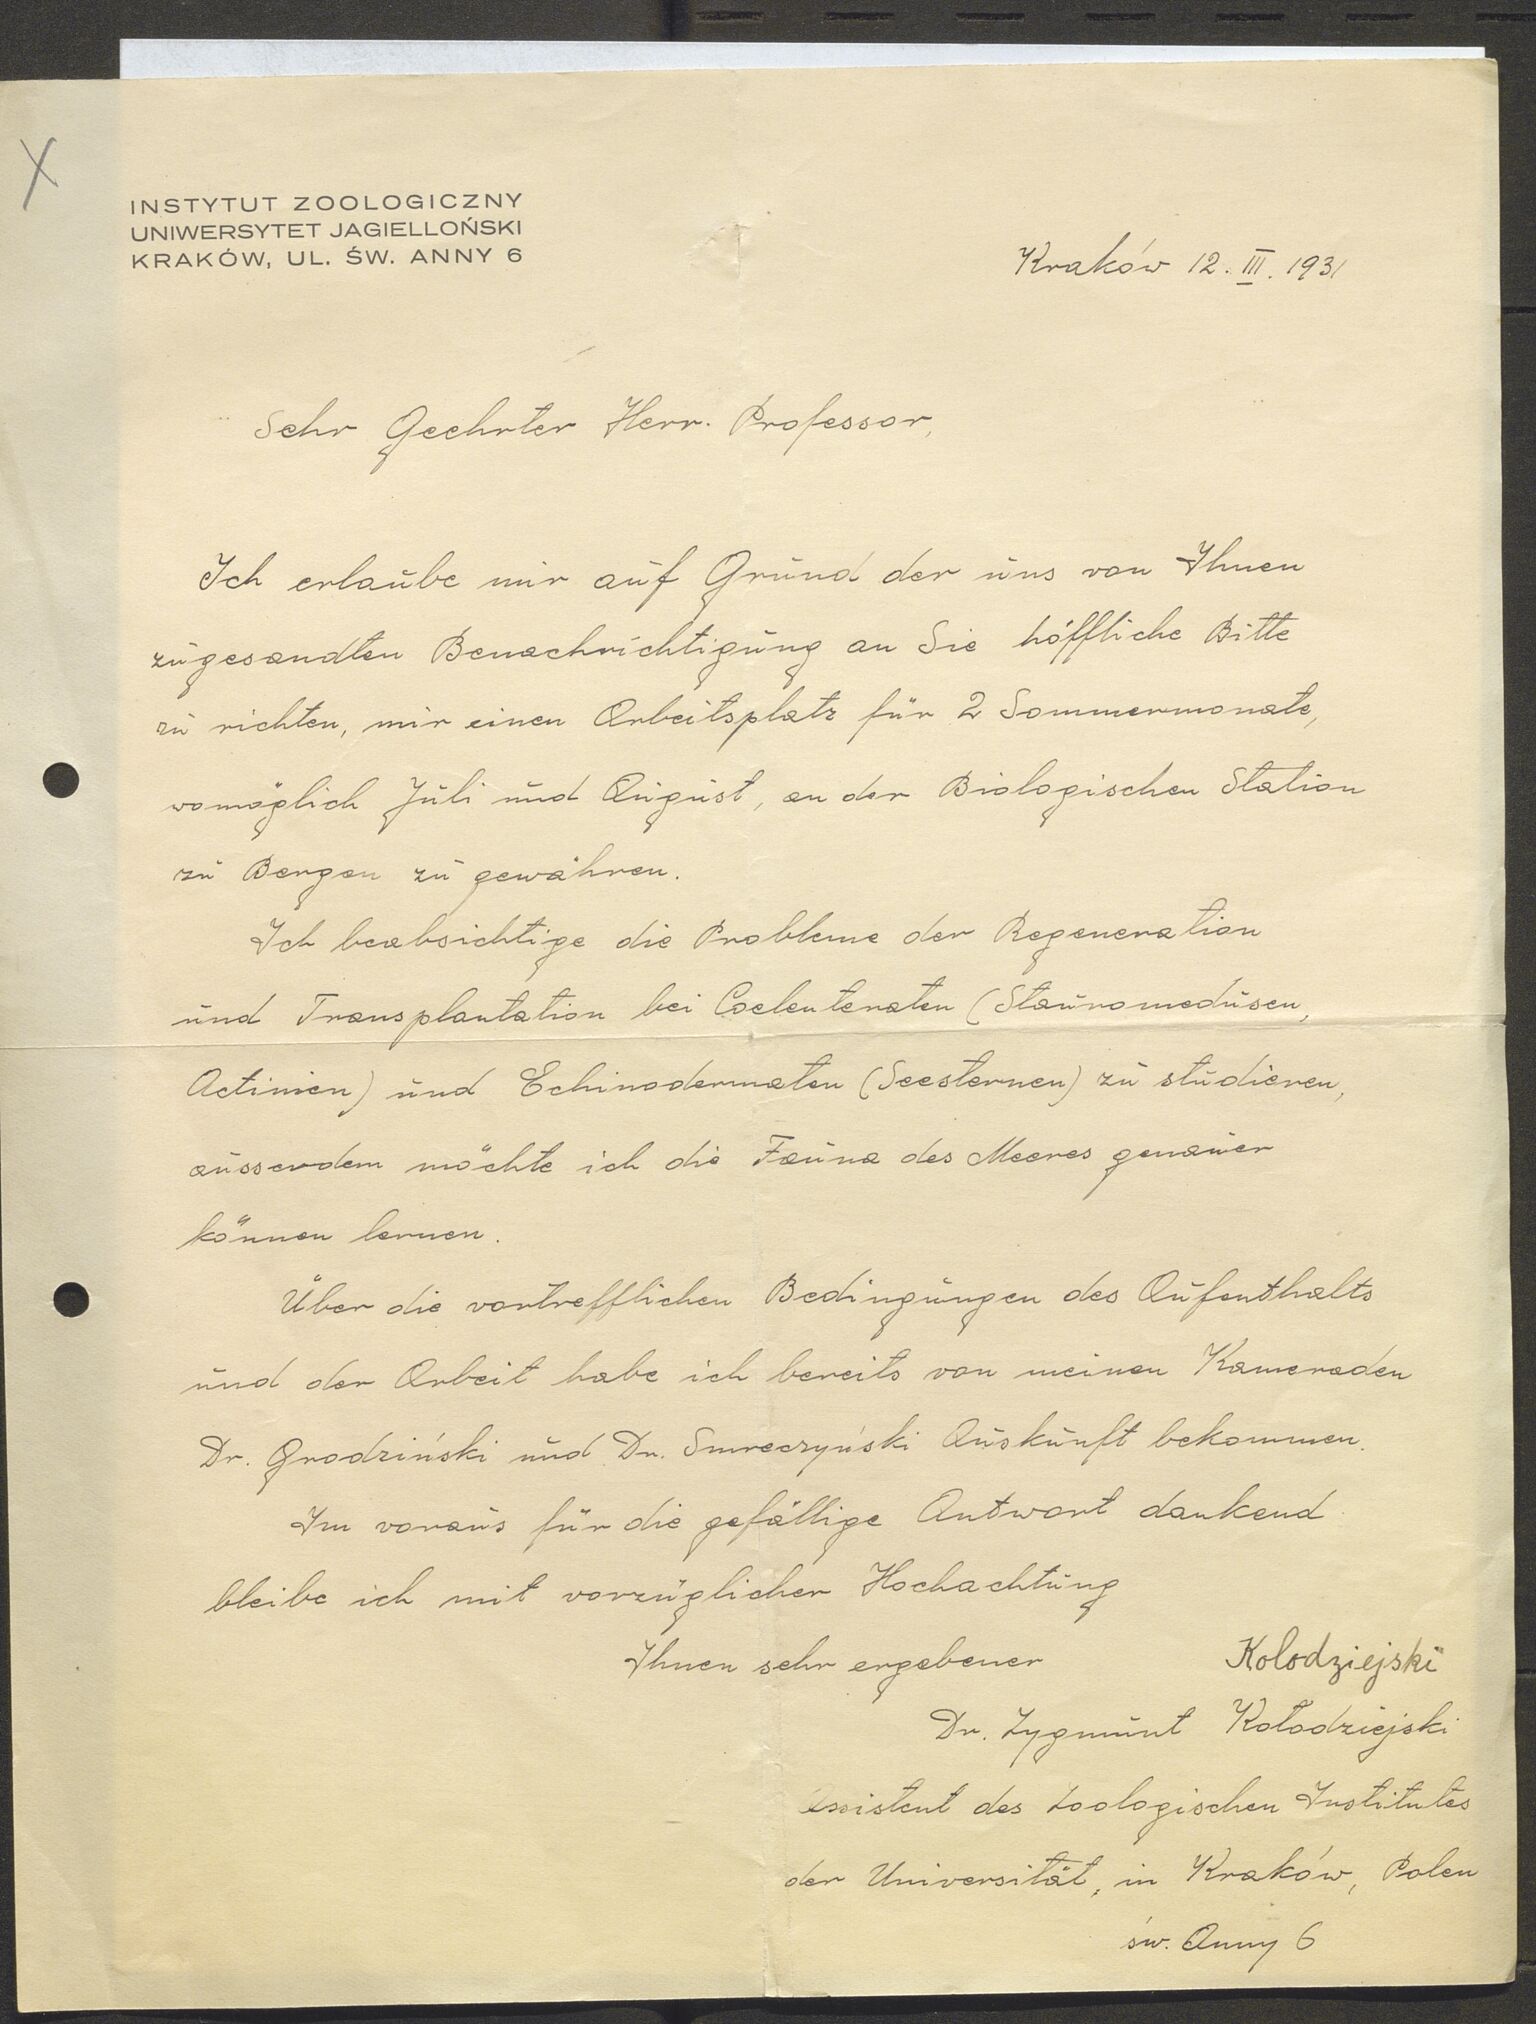 INSTYTUT ZOOLOGICZNY
UNIWERSYTET JAGIELLOŃSKI
KRAKÓW, UL. ŚW. ANNY 6
Kraków 12. III. 1931
Sehr Geehrter Herr. Professor,
Ich erlaube mir auf Grund der uns von Ihnen
zugesandten Benachrichtigung an Sie höffliche Bitte
zu richten, mir einen Arbeitsplatz für 2 Sommermonate,
womöglich Juli und August, an der Biologischen Station
zu Bergen zu gewähren.
Ich beabsichtige die Probleme der Regeneration
und Transplantation bei Coelenteraten (Stauromedusen,
Actinien) und Echinodermaten (Seesternen) zu studieren,
ausserdem möchte ich die Fauna des Meeres genauer
können lernen.
Über die vortrefflichen Bedingungen des Aufenthalts
und der Arbeit habe ich bereits von meinen Kameraden
Dr. Grodziński und Dr. Smreczyński Auskunft bekommen.
Im voraus für die gefällige Antwort dankend
bleibe ich mit vorzüglicher Hochachtung
Ihnen sehr ergebener
Kolodziejski
Dr. Zygmunt Kołodziejski
Assistent des Zoologischen Institutes
der Universität, in Kraków, Polen
św. Anny 6